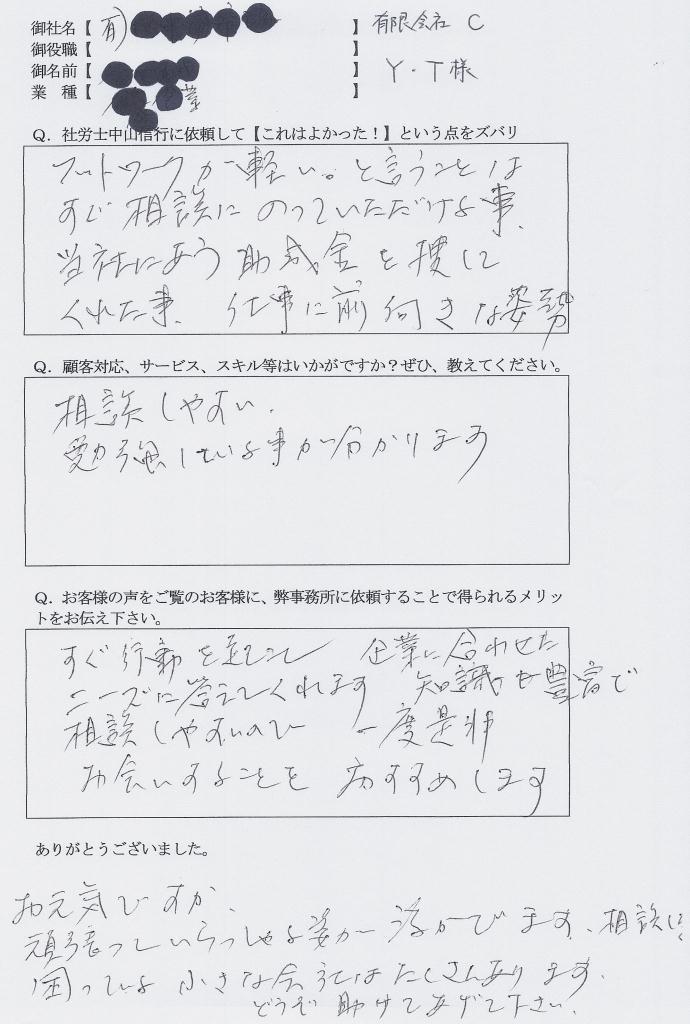 御社名【 (有) 】 有限会社 C
御役職【 】
御名前【 】 Y・T様
業 種【 業 】
Q．社労士中山信行に依頼して【これはよかった！】という点をズバリ
フットワークが軽い。と言うことは
すぐ相談にのっていただける事、
当社にあう助成金を捜して
くれた事、仕事に前向きな姿勢
Q．顧客対応、サービス、スキル等はいかがですか？ぜひ、教えてください。
相談しやすい、
勉強している事が分かります
Q．お客様の声をご覧のお客様に、弊事務所に依頼することで得られるメリッ
トをお伝え下さい。
すぐ行動を起こし 企業に合わせた
ニーズに答えてくれます 知識も豊富で
相談しやすいので 一度是非
お会いすることを おすすめします
ありがとうございました。
お元気ですか、
頑張っていらっしゃる姿が浮かびます、相談に
困っている小さな会社はたくさんあります、
どうぞ助けてあげて下さい、